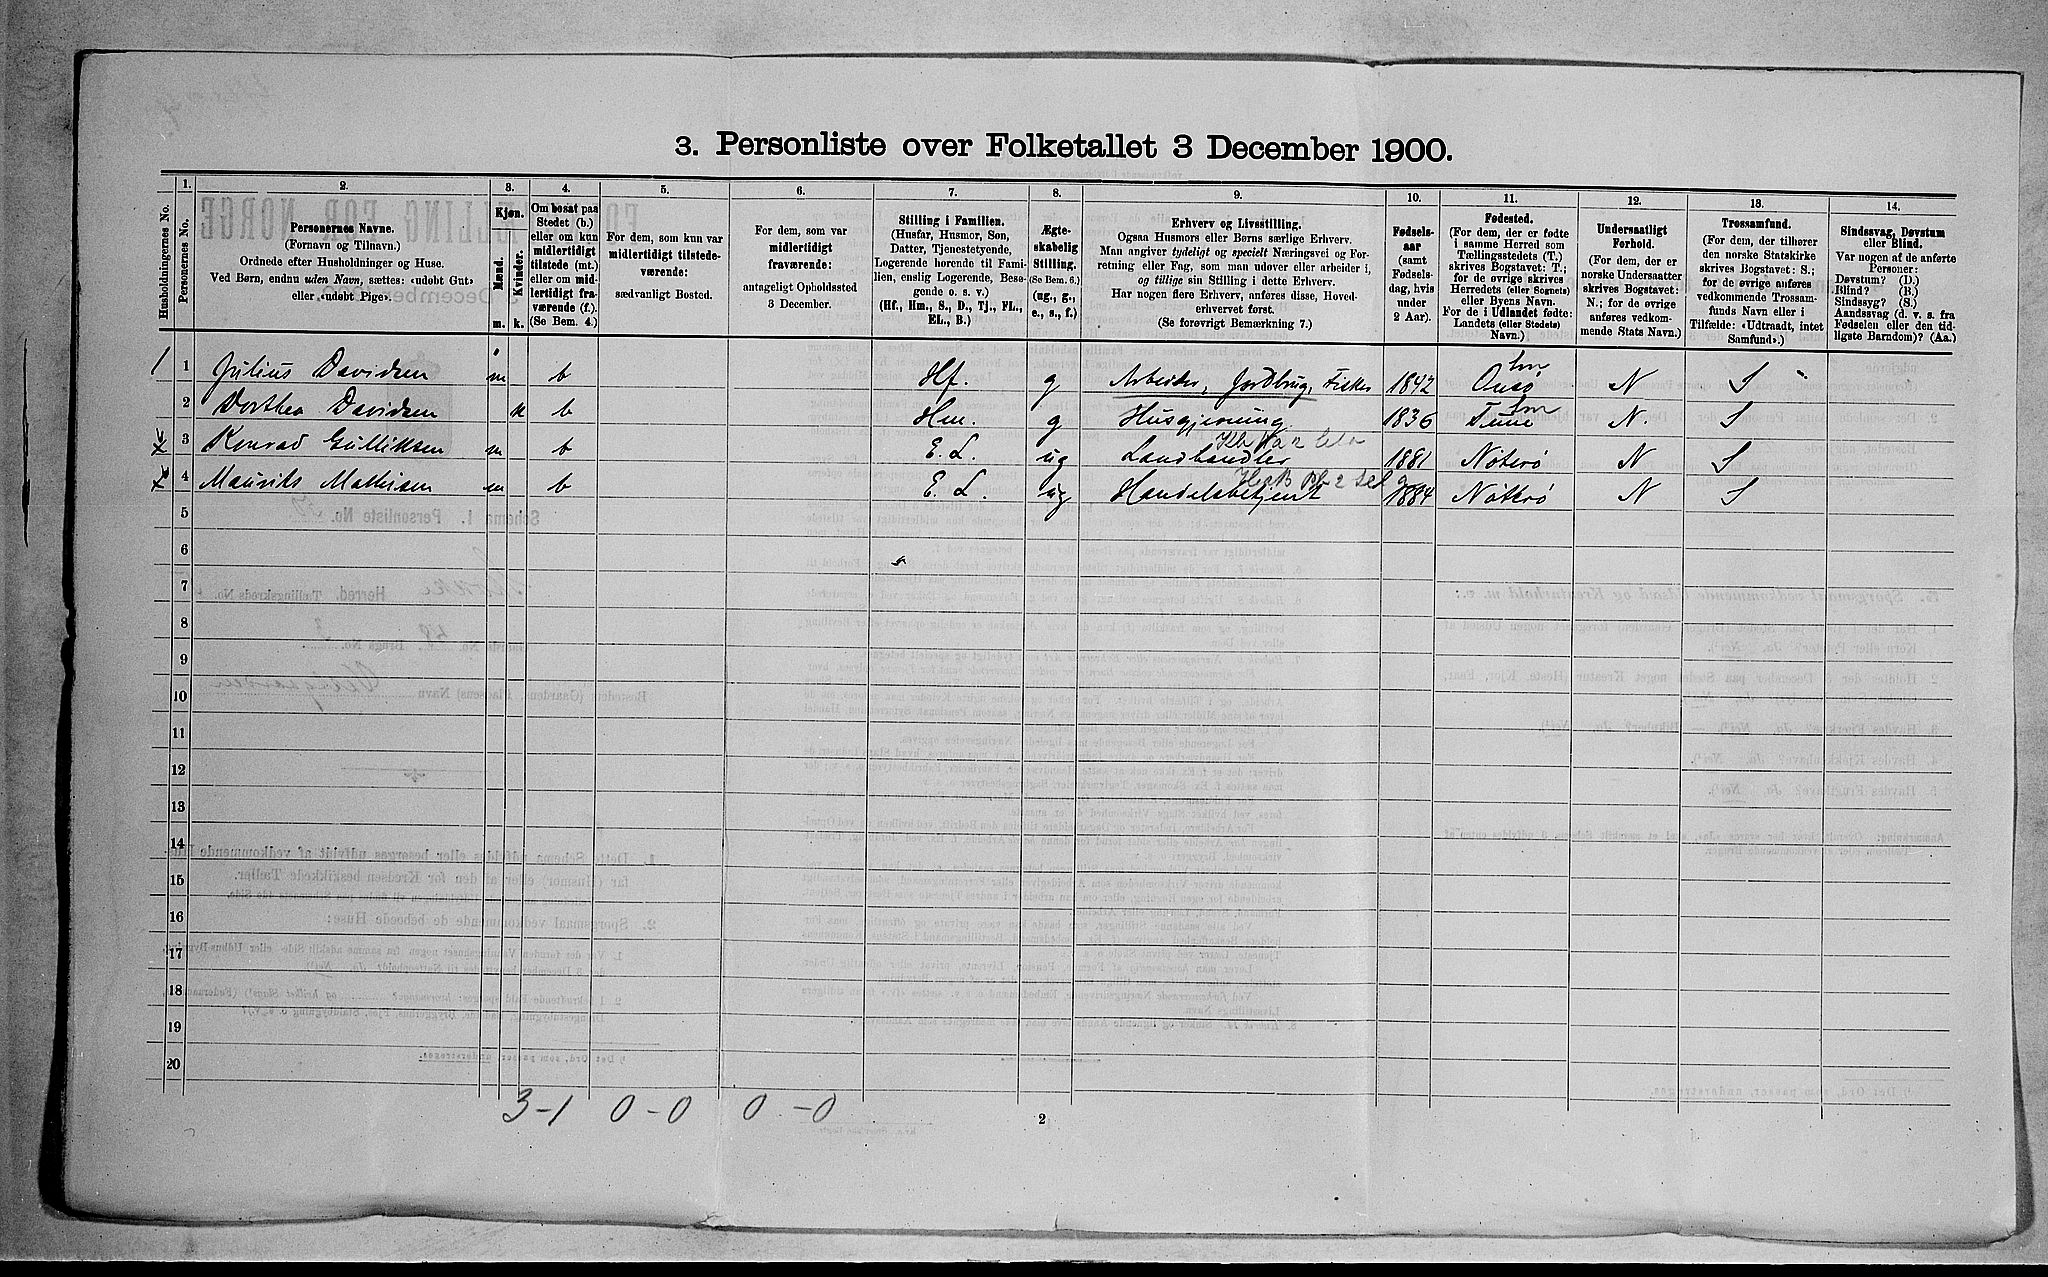 3. Personliste over Folketallet 3 December 1900.
Husholdningernes No.
1.
Personernes No.
2.
Personernes Navne.
(Fornavn og Tilnavn.)
Ordnede efter Husholdninger og Huse.
Ved Børn, endnu uden Navn, sættes: «udøbt Gut»
eller «udøbt Pige».
3.
Kjøn.
Mænd.
Kvinder.
m. k.
4.
Om bosat paa
Stedet (b.)
eller om kun
midlertidigt
tilstede (mt.)
eller om mid-
lertidigt fra-
værende (f.).
(Se Bem. 4.)
5.
For dem, som kun var
midlertidigt tilstede-
værende:
sædvanligt Bosted.
6.
For dem, som var
midlertidigt
fraværende:
antageligt Opholdssted
3 December.
7.
Stilling i Familien.
(Husfar, Husmor, Søn,
Datter, Tjenestetyende,
Logerende hørende til Fami-
lien, enslig Logerende, Besø-
gende o. s. v.)
(Hf., Hm., S., D., Tj., FL.,
EL., B.)
8.
Ægte-
skabelig
Stilling.
(Se Bem. 6.)
(ug., g.,
e., s., f.)
9.
Erhverv og Livsstilling.
Ogsaa Husmors eller Børns særlige Erhverv.
Man angiver tydeligt og specielt Næringsvei og For-
retning eller Fag, som man udøver eller arbeider i,
og tillige sin Stilling i dette Erhverv.
Har nogen flere Erhverv, anføres disse, Hoved-
erhvervet først.
(Se forøvrigt Bemærkning 7.)
10.
Fødsels-
aar
(samt
Fødsels-
dag, hvis
under
2 Aar).
11.
Fødested.
(For dem, der er fødte
i samme Herred som
Tællingsstedets (T.)
skrives Bogstavet: T.;
for de øvrige skrives
Herredets (eller Sognets)
eller Byens Navn.
For de i Udlandet fødte:
Landets (eller Stedets)
Navn.)
12.
Undersaatligt
Forhold.
(For dem, der er
norske Undersaatter
skrives Bogstavet:
N.; for de øvrige
anføres vedkom-
mende Stats Navn.)
13.
Trossamfund.
(For dem, der tilhører
den norske Statskirke
skrives Bogstavet: S.;
for de øvrige anføres
vedkommende Trossam-
funds Navn eller i
Tilfælde: «Udtraadt, intet
Samfund».)
14.
Sindssvag, Døvstum
eller Blind.
Var nogen af de anførte
Personer:
Døvstum? (D.)
Blind? (B.)
Sindssyg? (S.)
Aandssvag (d. v. s. fra
Fødselen eller den tid-
ligste Barndom)? (Aa.)
1 1 Julius Davidsen m b Hf. g Arbeider, Jordbrug, Fisker 1842 Onsø Sm N S
2 Dorthea Davidsen k b Hm. g Husgjerning 1836 Tune Sm N. S
3 Konrad Gulliksen m b E. L. ug Landhandler 1881 Nøterø N S
4 Mauritz Mathisen m b E. L. ug Handelsbetjent 1884 Nøtterø N S
5
6
7
8
9
10
11
12
13
14
15
16
17
18
19
20
3-1 0-0 0-0
2